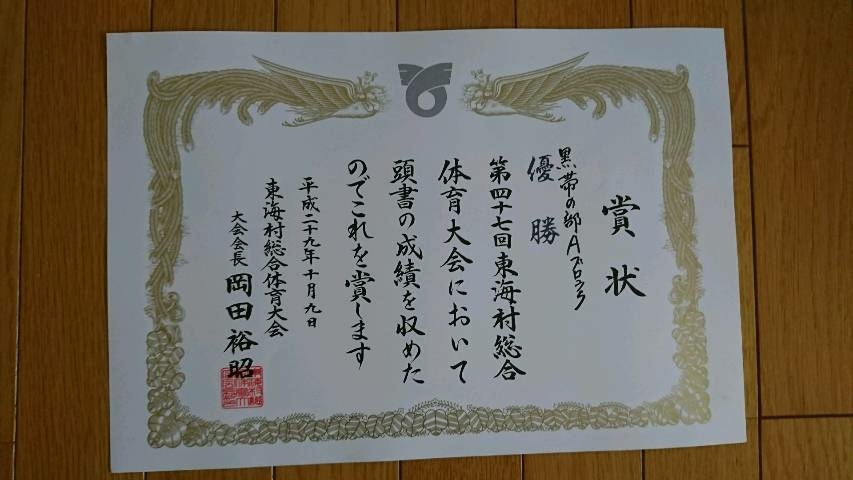 賞状
黒帯の部Aブロック
優勝
第四十七回東海村総合
体育大会において
頭書の成績を収めた
のでこれを賞します
平成二十九年十月九日
東海村総合体育大会
大会会長 岡田裕昭